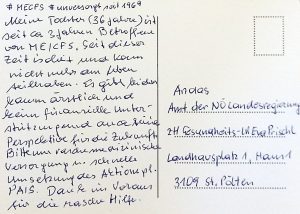 # MECFS # unversorgt seit 1969
Meine Tochter (36 Jahre) ist
seit ca 3 Jahren Betroffene
von ME/CFS. Seit dieser
Zeit ist sie und kann
nicht mehr am Leben
teilhaben. Es gibt leider
kaum ärztliche und
keine finanzielle Unter-
stützung und auch keine
Perspektive für die Zukunft
Bitte um medizinische
Versorgung u. schnelle
Umsetzung des Aktionspl.
PAIS. Danke im Voraus
für die rasche Hilfe.
An das
Amt der NÖ Landesregierung
ZH Gesundheits-LR Eva Prischl
Landhausplatz 1, Haus 1
3109 St. Pölten